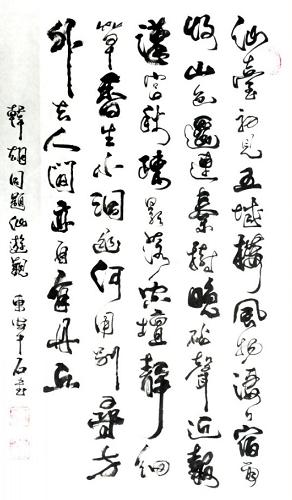 仙臺初見五城樓風物淒々宿雨
收山色遙連秦樹晚砧聲近報
漢宮秋疏影落空壇靜細
草香生小洞幽何用別尋方
外去人間亦自有丹丘
韓翃同題仙遊觀 中石書